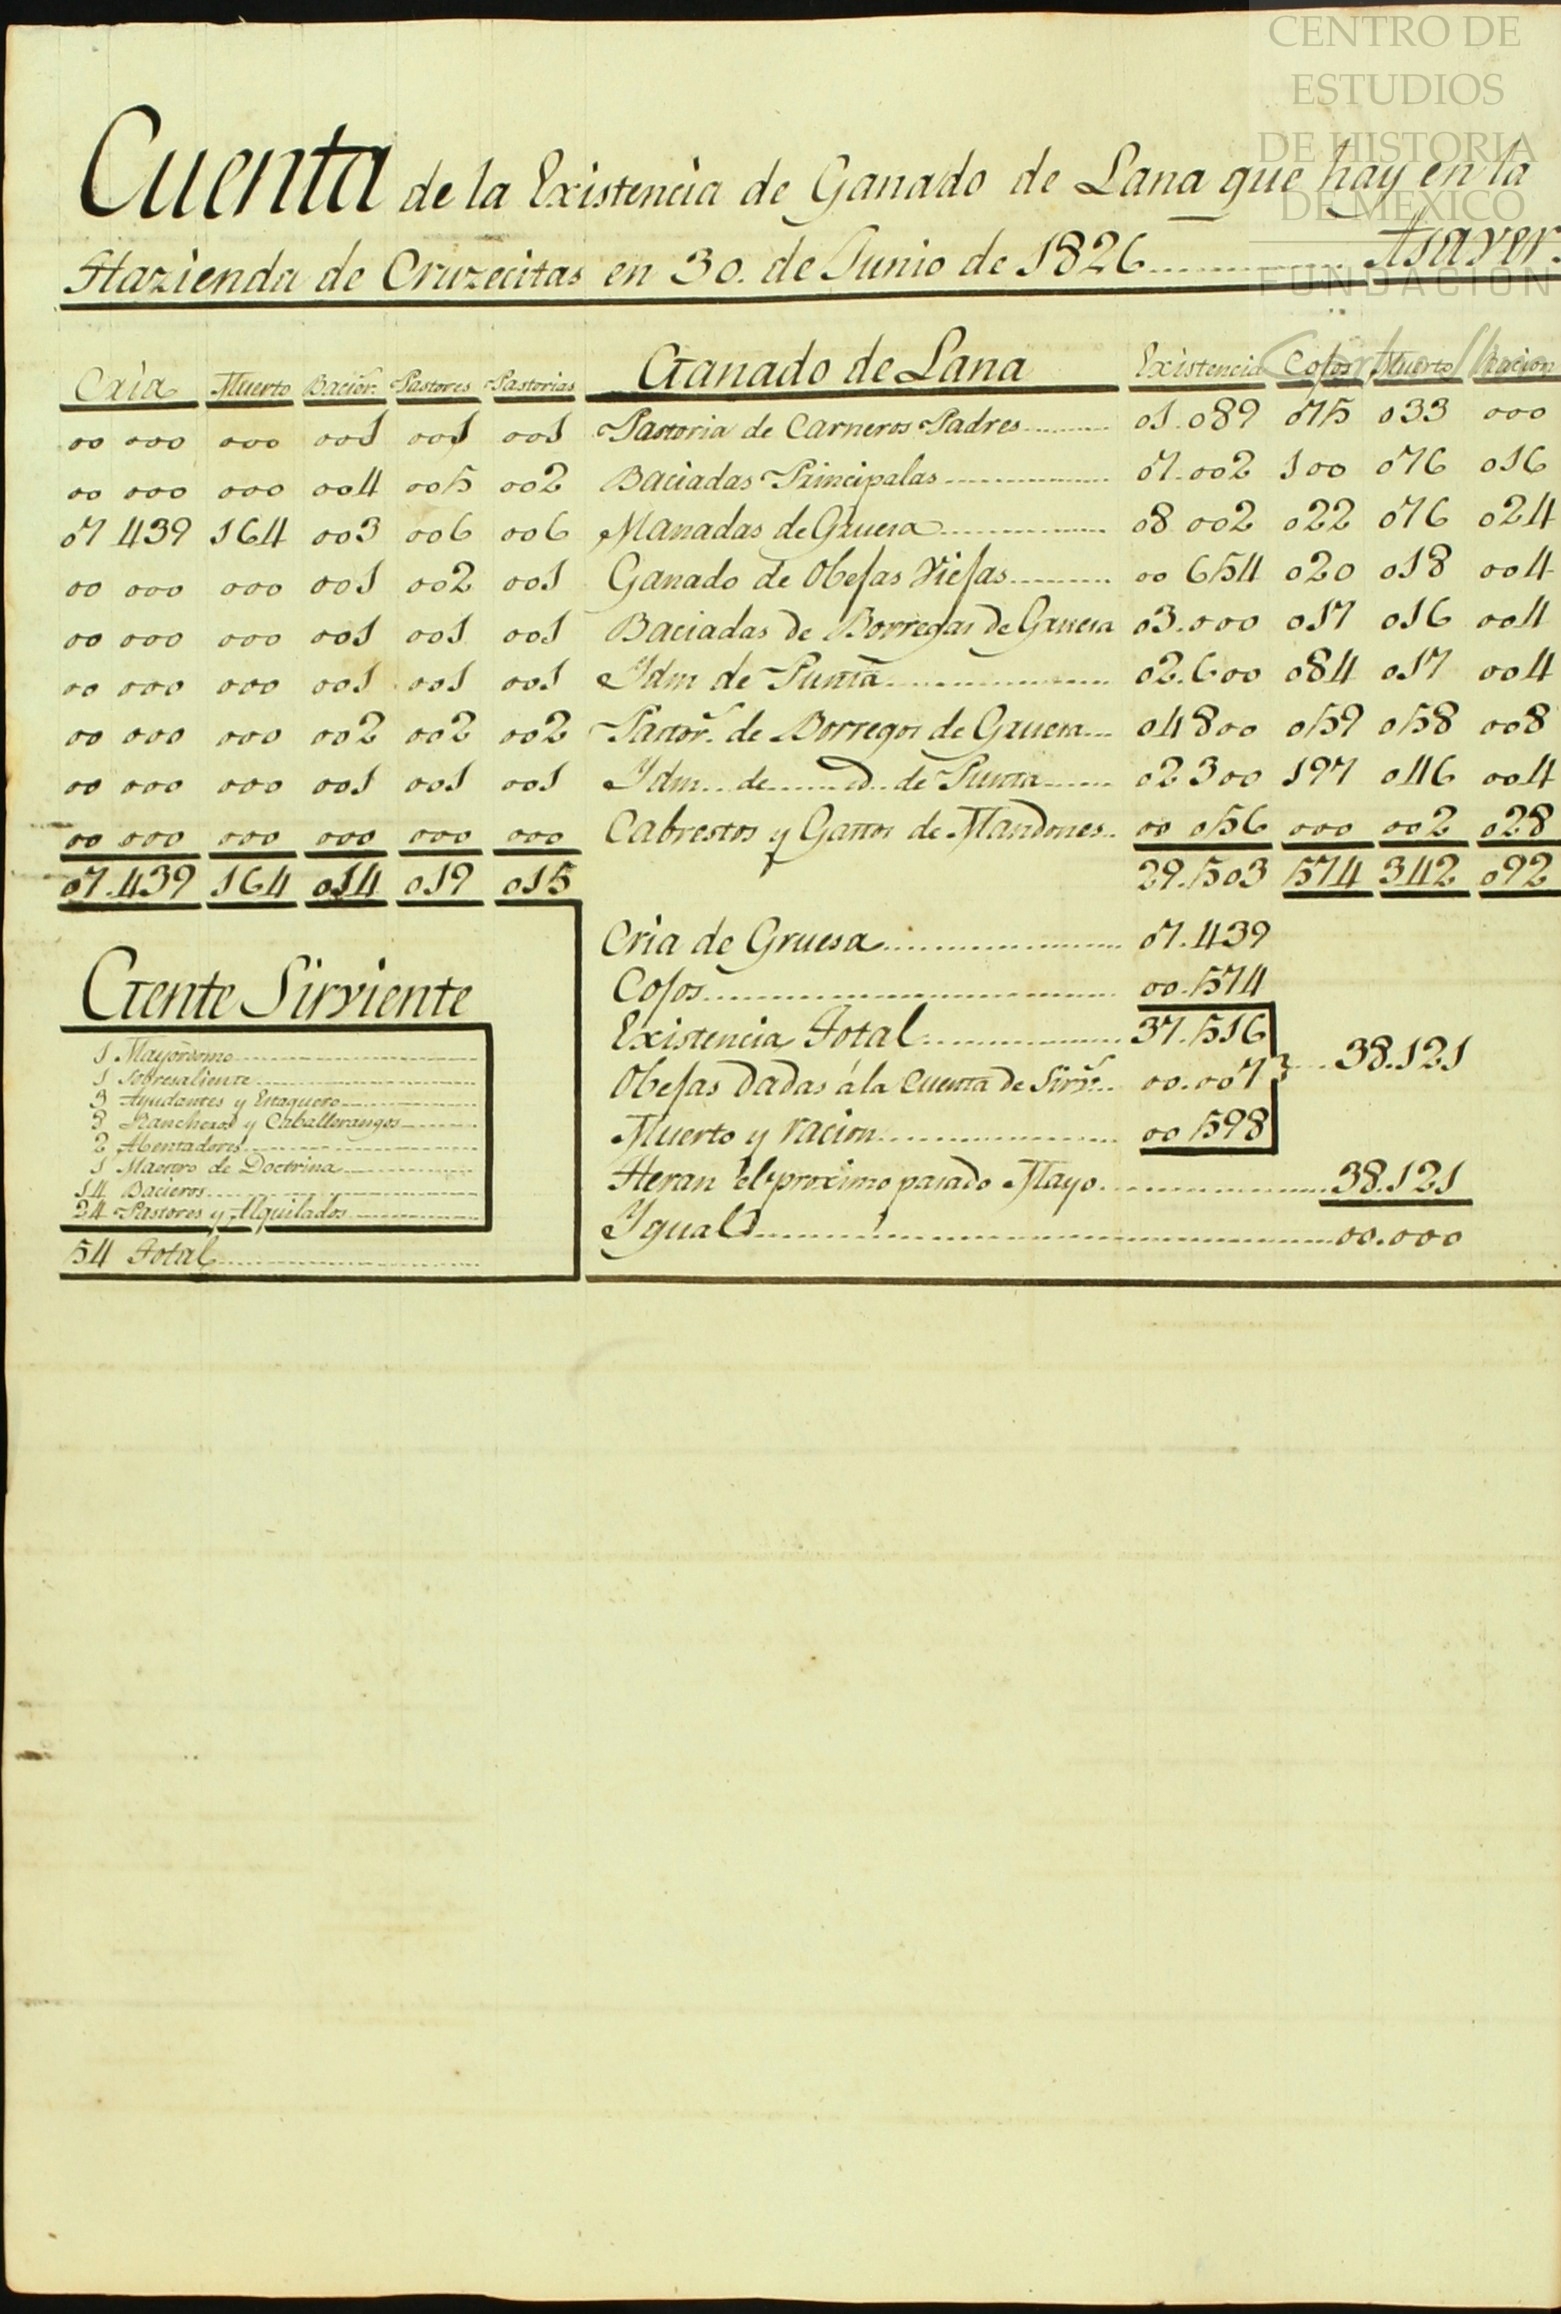 CENTRO DE
ESTUDIOS
DE HISTORIA
DE MEXICO
FUNDACIÓN
Cuenta de la Existencia de Ganado de Lana que hay en la
Hazienda de Cruzecitas en 30. de Junio de 1826 Asaver.
Cria Muerto Bacier.s Pastores Pastorias Ganado de Lana Existencia Cojos Muerto Racion
00 000 000 001 001 001 Pastoria de Carneros Padres 01.089 075 033 000
00 000 000 004 005 002 Baciadas Principalas 07.002 100 076 016
07 439 164 003 006 006 Manadas de Gruesa 08 002 022 076 024
00 000 000 001 002 001 Ganado de Obejas Viejas 00 654 020 018 004
00 000 000 001 001 001 Baciadas de Borregas de Gruesa 03.000 017 016 004
00 000 000 001 001 001 Ydm de Punta 02.600 084 017 004
00 000 000 002 002 002 Pastor.s de Borregos de Gruesa 04800 059 058 008
00 000 000 001 001 001 Ydm de d. de Punta 02300 197 046 004
00 000 000 000 000 000 Cabrestos y Gattos de Mandones 00 056 000 002 028
07.439 164 014 019 015 29.503 574 342 092
Cria de Gruesa 07.439
Cojos 00.574
Existencia Total 37.516
Obejas dadas á la Cuenta de Sirv.s 00.007 38.121
Muerto y racion 00 598
Heran el proximo pasado Mayo 38.121
Ygual 00.000
Gente Sirviente
1 Mayordomo
1 Sobresaliente
3 Ayudantes y Estaquero
3 Rancheros y Caballerangos
2 Abentadores
1 Maestro de Doctrina
14 Bacieros
24 Pastores y Alquilados
54 Total